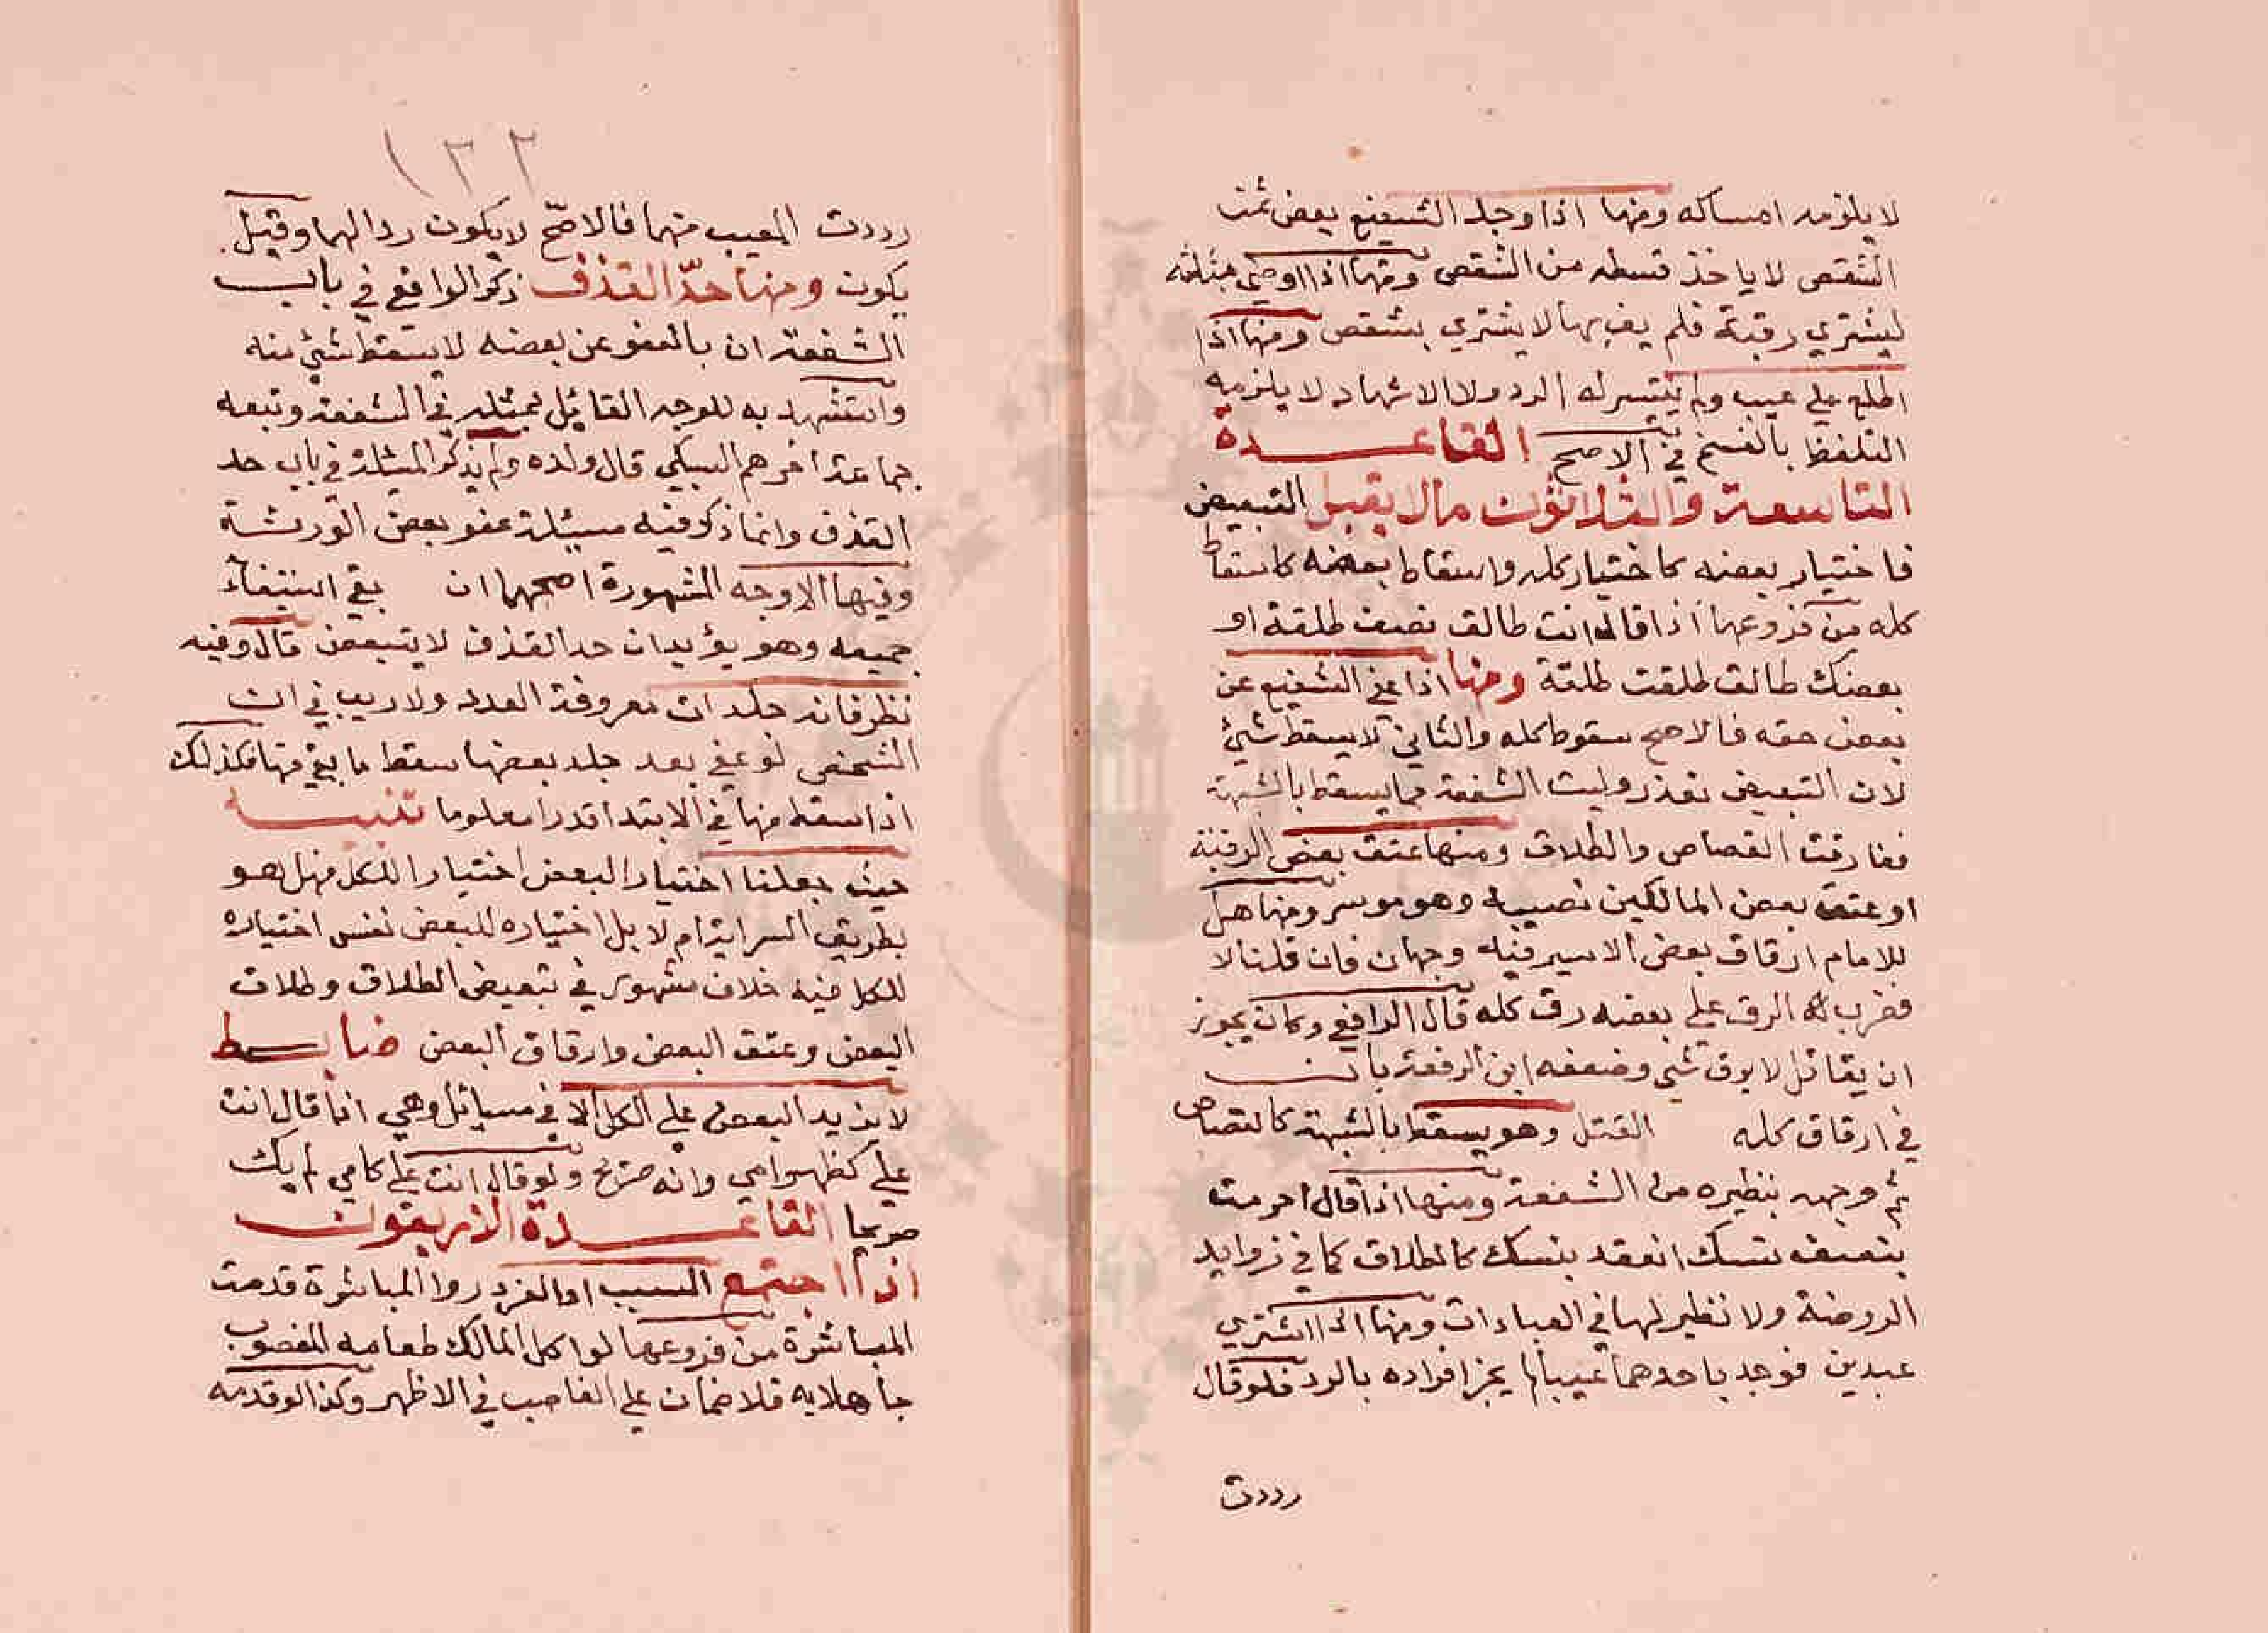 لا يلزمه امساكه ومنها اذا وجد الشفيع بعض ثمن
الشقص لا ياخذ قسطه من الشقص ومنها اذا اوصى بثلثه
ليشتري رقبة فلم يف بها لا يشتري بشقص ومنها اذا
اطلع على عيب ولم يتيسر له الرد ولا الاشهاد لا يلزمه
التلفظ بالفسخ في الاصح القاعدة
التاسعة والثلاثون مالا يقبل التبعيض
فاختيار بعضه كاختيار كله واسقاط بعضه كاسقاط
كله من فروعها اذا قال انت طالق نصف طلقة او
بعضك طالق طلقت طلقة ومنها اذا عفى الشفيع عن
بعض حقه فالاصح سقوط كله والثاني لا يسقط شئ
لان التبعيض تعذر وليت الشفعة مما يسقط بالشبهة
ففارقت القصاص والطلاق ومنها عتق بعض الرقبة
او عتق بعض المالكين نصيبه وهو موسر ومنها هل
للامام ارقاق بعض الاسير فيه وجهان فان قلنا لا
فضرب الرق على بعضه رق كله قال الرافعي وكان يجوز
ان يقال لا يرق شئ وضعفه ابن الرفعة بان
في ارقاق كله القتل وهو يسقط بالشبهة كالقصاص
ثم وجهه بنظيره من الشفعة ومنها اذا قال احرمت
بنصف نسك انعقد بنسك كالطلاق كما في زوايد
الروضة ولا نظير لها في العبادات ومنها اذا اشترى
عبدين فوجد باحدهما عيبا لم يجز افراده بالرد فلو قال
رددت
١٣٢
رددت المعيب منهما فالاصح لا يكون ردا لهما وقيل
يكون ومنها حد القذف ذكر الرافعي في باب
الشفعة ان بالعفو عن بعضه لا يسقط شئ منه
واستشهد به للوجه القائل بمثله في الشفعة وتبعه
جماعة اخرهم السبكي قال ولده ولم يذكر المسئلة في باب حد
القذف وانما ذكر فيه مسئلة عفو بعض الورثة
وفيها الاوجه المشهورة اصحهما ان بقي استيفآء
جميعه وهو يؤيد ان حد القذف لا يتبعض قال وفيه
نظر فانه جلدات معروفة العدد ولا ريب في ان
الشخص لو عفي بعد جلد بعضها سقط ما بقي منها فكذلك
اذا سقط منها في الابتدا قدرا معلوما تنبيه
حيث جعلنا اختيار البعض اختيارا للكل فهل هو
بطريق السراية ام لا بل اختياره للبعض نفس اختياره
للكل فيه خلاف مشهور في تبعيض الطلاق وطلاق
البعض وعتق البعض وارقاق البعض ضابط
لا يزيد البعض على الكل الا في مسائل وهي اذا قال انت
علي كظهر امي وانه صريح ولو قال انت علي كامي لم يك
صريحا القاعدة الاربعون
اذا اجتمع السبب او الغرور والمباشرة قدمت
المباشرة من فروعها لو اكل المالك طعامه المغصوب
جاهلا به فلا ضمان على الغاصب في الاظهر وكذا لو قدمه